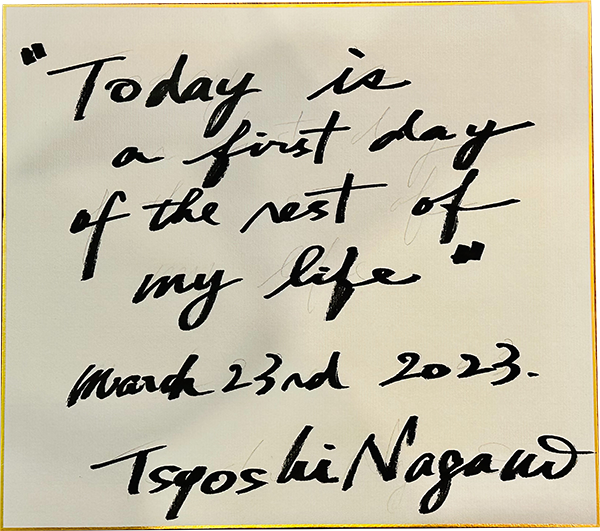 "Today is
a first day
of the rest of
my life"
March 23rd 2023.
Tsyoshi Nagano